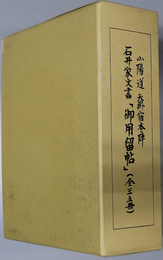 山陽道矢掛宿本陣
石井家文書「御用留帖」(全三五冊)